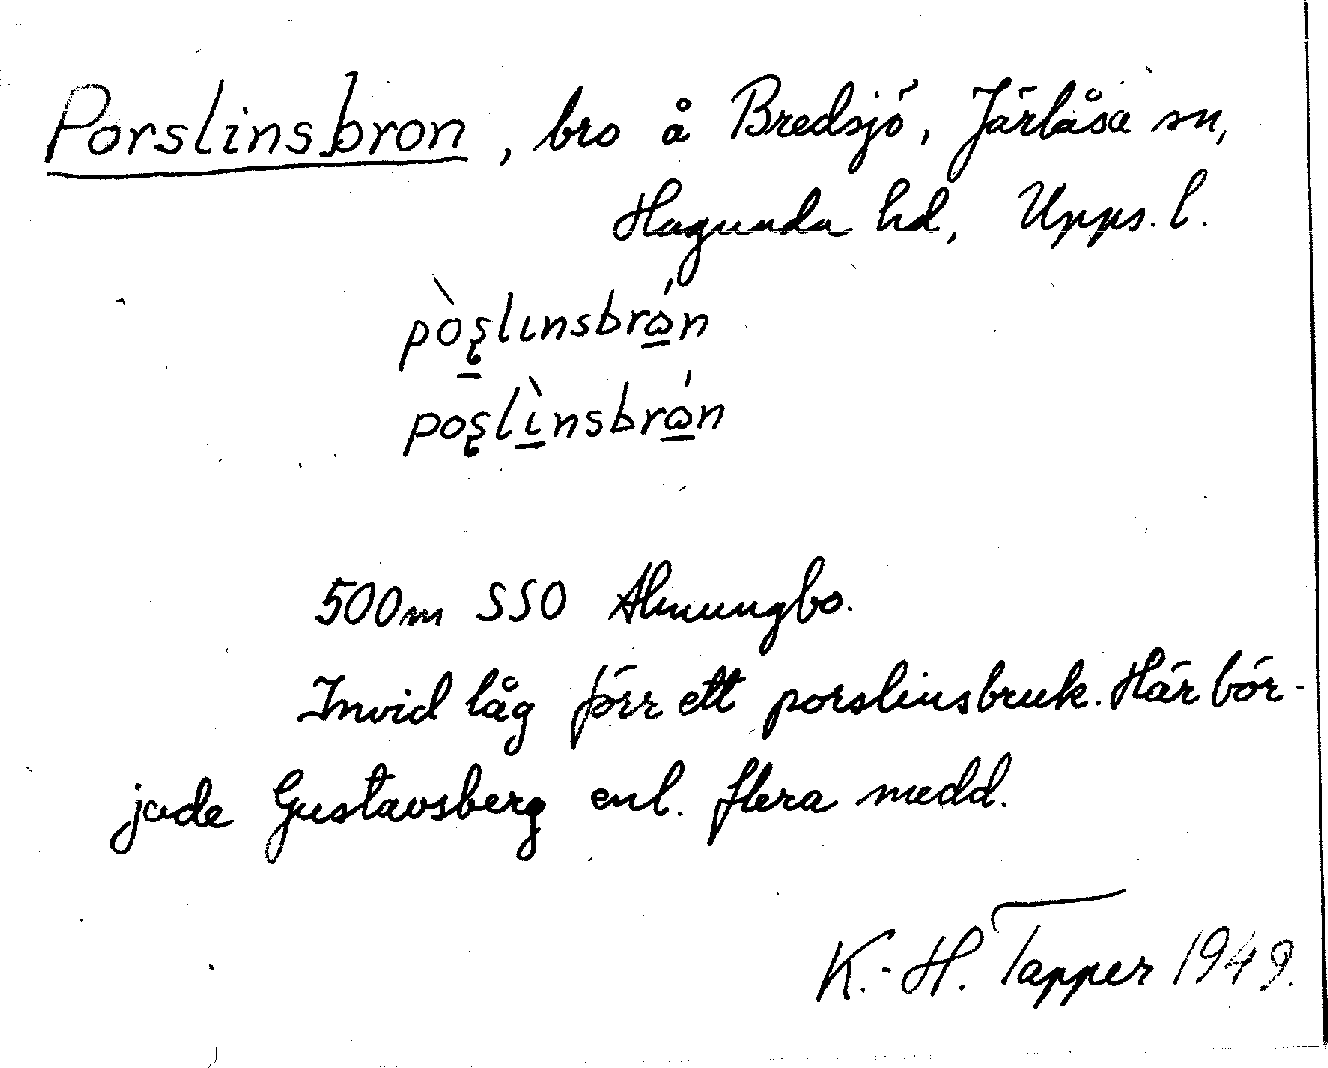 Porslinsbron, bro å Bredsjö, Järlåsa sn,
Hagunda hd, Upps. l.
500m SSO Almungbo.
Invid låg förr ett porslinsbruk. Här bör-
jade Gustavsberg enl. flera medd.
K.-H. Tapper 1949.